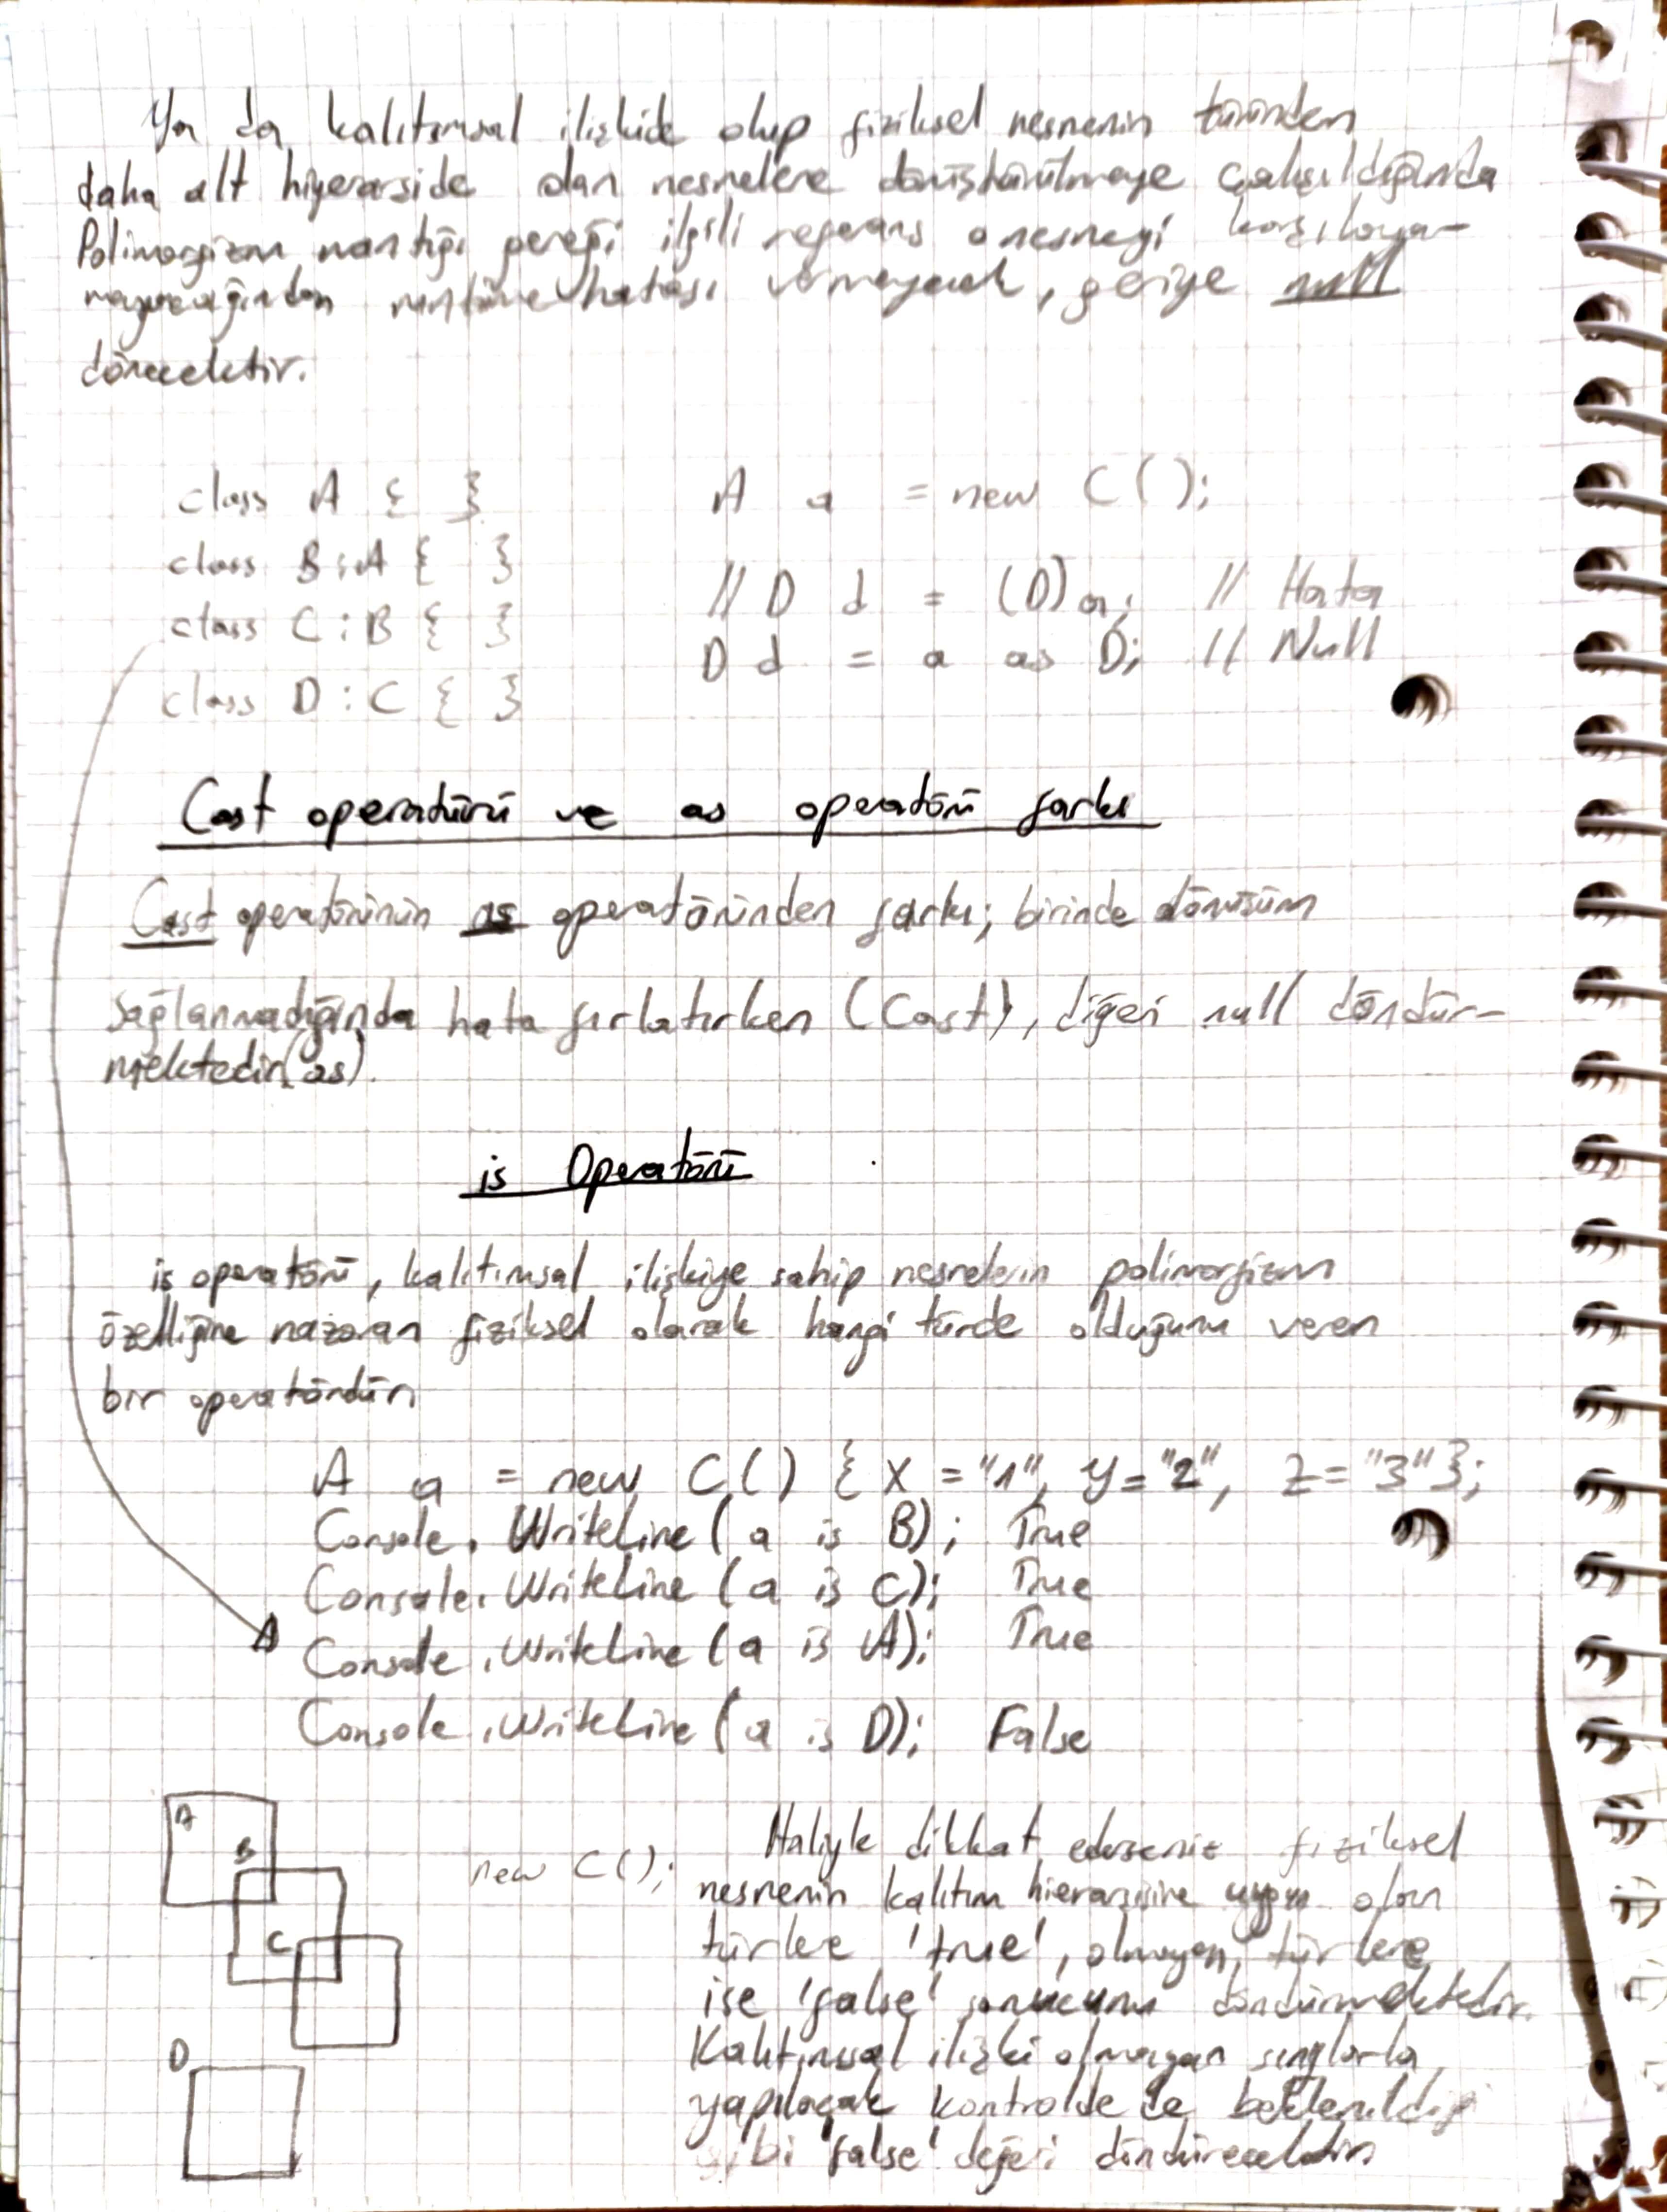 Ya da kalıtımsal ilişkide olup fiziksel nesnenin türünden
daha alt hiyerarside olan nesnelere dönüştürülmeye çalışıldığında
Polimorfizm mantığı gereği ilgili referans o nesneyi karşılaya-
mayacağından runtime hatası vermeyecek, geriye null
dönecektir.
class A { }
class B : A { }
class C : B { }
class D : C { }
A a = new C();
// D d = (D) a; // Hata
D d = a as D; // Null
Cast operatürü ve as operatörü farkı
Cast operatörünün as operatöründen farkı; birinde dönüşüm
sağlanmadığında hata fırlatırken (Cast), diğeri null döndür-
mektedir(as).
is Operatörü
is operatörü, kalıtımsal ilişkiye sahip nesnelerin polimorfizm
özelliğine nazaran fiziksel olarak hangi türde olduğunu veren
bir operatördür.
A a = new C() { X = "1", Y = "2", Z = "3" };
Console.WriteLine( a is B); True
Console.WriteLine (a is C); True
Console.WriteLine (a is A); True
Console.WriteLine (a is D); False
A
B
C
D
new C();
Haliyle dikkat ederseniz fiziksel
nesnenin kalıtım hierarşisine uygun olan
türlere 'true', olmayan türlere
ise 'false' sonucunu döndürmektedir.
Kalıtımsal ilişki olmayan sınıflarla
yapılacak kontrolde de beklenildiği
gibi 'false' değeri döndürecektir